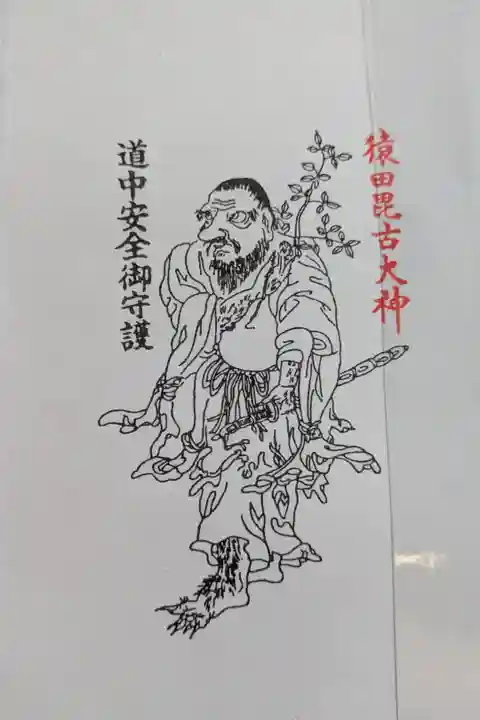 猿田毘古大神
道中安全御守護